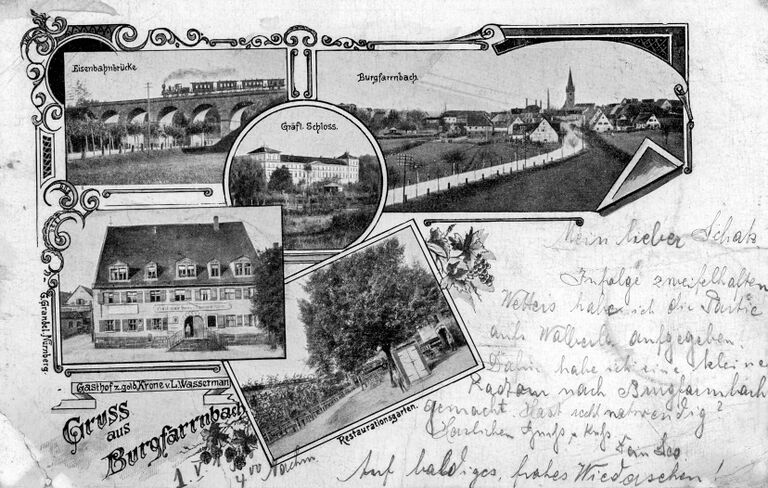 Eisenbahnbrücke
Burgfarrnbach.
Gräfl. Schloss.
Gasthof z. gold. Krone v. L. Wassermann
Restaurationsgarten.
Gruss
aus
Burgfarrnbach
Mein lieber Schatz
Infolge zweifelhaften
Wetters habe ich die Partie
aufs Walberla aufgegeben.
Dafür habe ich eine kleine
Radtour nach Burgfarrnbach
gemacht. Hast recht notwendig?
Herzlichen Gruß u. Kuß
Dein Leo
1. V.
4 00 Nachm.
Auf baldiges, frohes Wiedersehen!